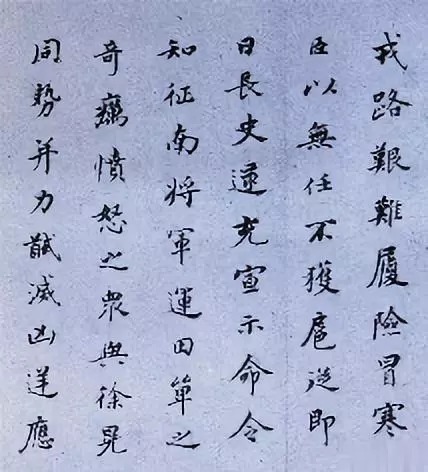 戎路艱難履險冒寒
臣以無任不獲扈從即
日長史逯充宣示命令
知征南將軍運田單之
奇厲憤怒之眾與徐晃
同勢并力翦滅凶逆應